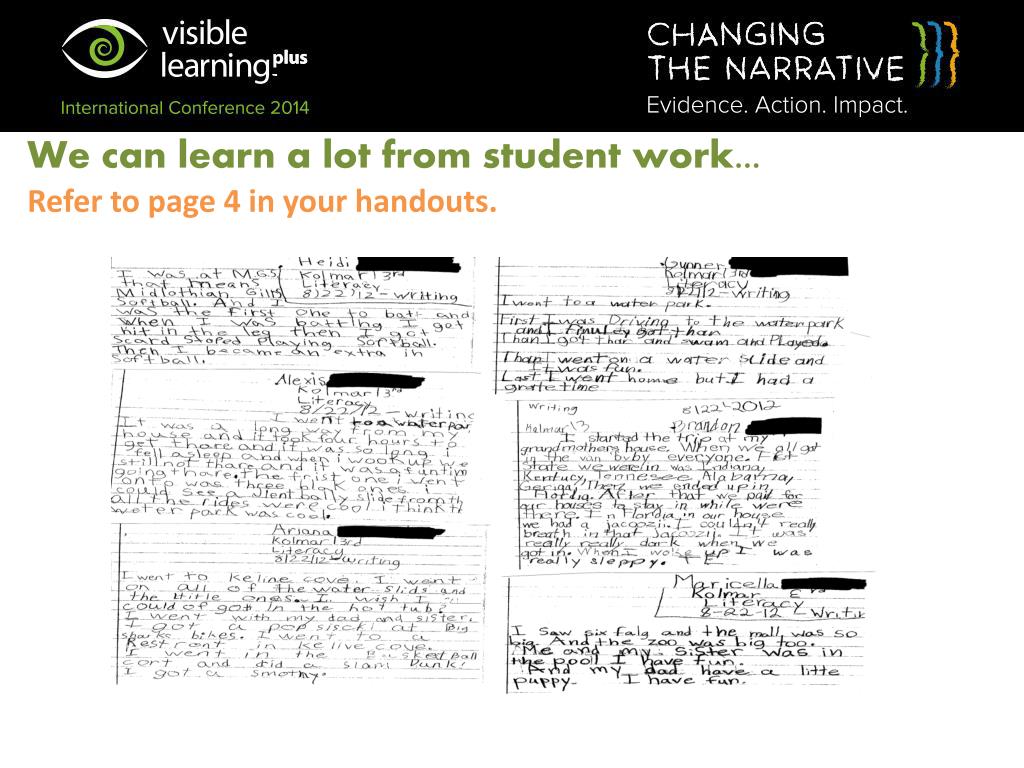 visible
learning plus
International Conference 2014
CHANGING
THE NARRATIVE
Evidence. Action. Impact.
We can learn a lot from student work...
Refer to page 4 in your handouts.
Heidi
Kolmar 3rd
Literacy
8/22/12-writing
I was at M.G.S
that means
Midlothian Girls
Softball. And I
was the first one to bat and
when I was batting I got
hit in the leg then I got
scard stoped Playing Softball.
Then I became an extra in
softball.
Alexis
Kolmar 3rd
Literacy
8/22/12-writing
I went to a waterpar
It was a long way from my
house and it took four hours to
get thare and it was so long i
fell asleep and when i wook up we
still not thare and it was a funtim
going thare. The frist one i went
onto was three blak ones. i
could see a silent bally slide from th
all the rides were cool i think th
water park was cool.
Ariana
Kolmar 3rd
Literacy
8/22/12-writing
I went to keline cove. I went
on all of the water slids and
the little ones. I wish I
could of got in the hot tub?
I went with my dad and sister.
I got a popsisckl at Big
sharke bikes. I went to a
Restront in kelive cove.
I went in the Basketball
cort and did a slam Dunk!
I got a smothy.
Gunner
Kolmar 3rd
Literacy
8/22/12-writing
I went to a water park.
First I was Driving to the waterpark
and I finuley got thar
Than I got thar and swam and Played.
Than I went on a water slide and
It was fun.
Last I went home but I had a
grate time
Writing 8/22-2012
Kolmar 3 Brandon
I started the trip at my
grandmothers house. When we all got
in the van by by everyone. First
state we were in was Indiana,
Kentucy, Tennesee, Alabama,
Gerigia, Then we ended up in
Flordia. After that we paid for
our houses to stay in while were
there. In Flordia in our house
we had a jacoozii. I couldn't really
breath in that jacoozii. It was
really really dark when we
got in. When I woke up I was
really sleppy.
Maricella
Kolmar 3rd
Literacy
8-22-12-Writin
I saw six falg and the mall, was so
big. And the zoo was big too.
Me and my sister was in
the pool I have fun.
And my dad have a litte
puppy. I have fun.